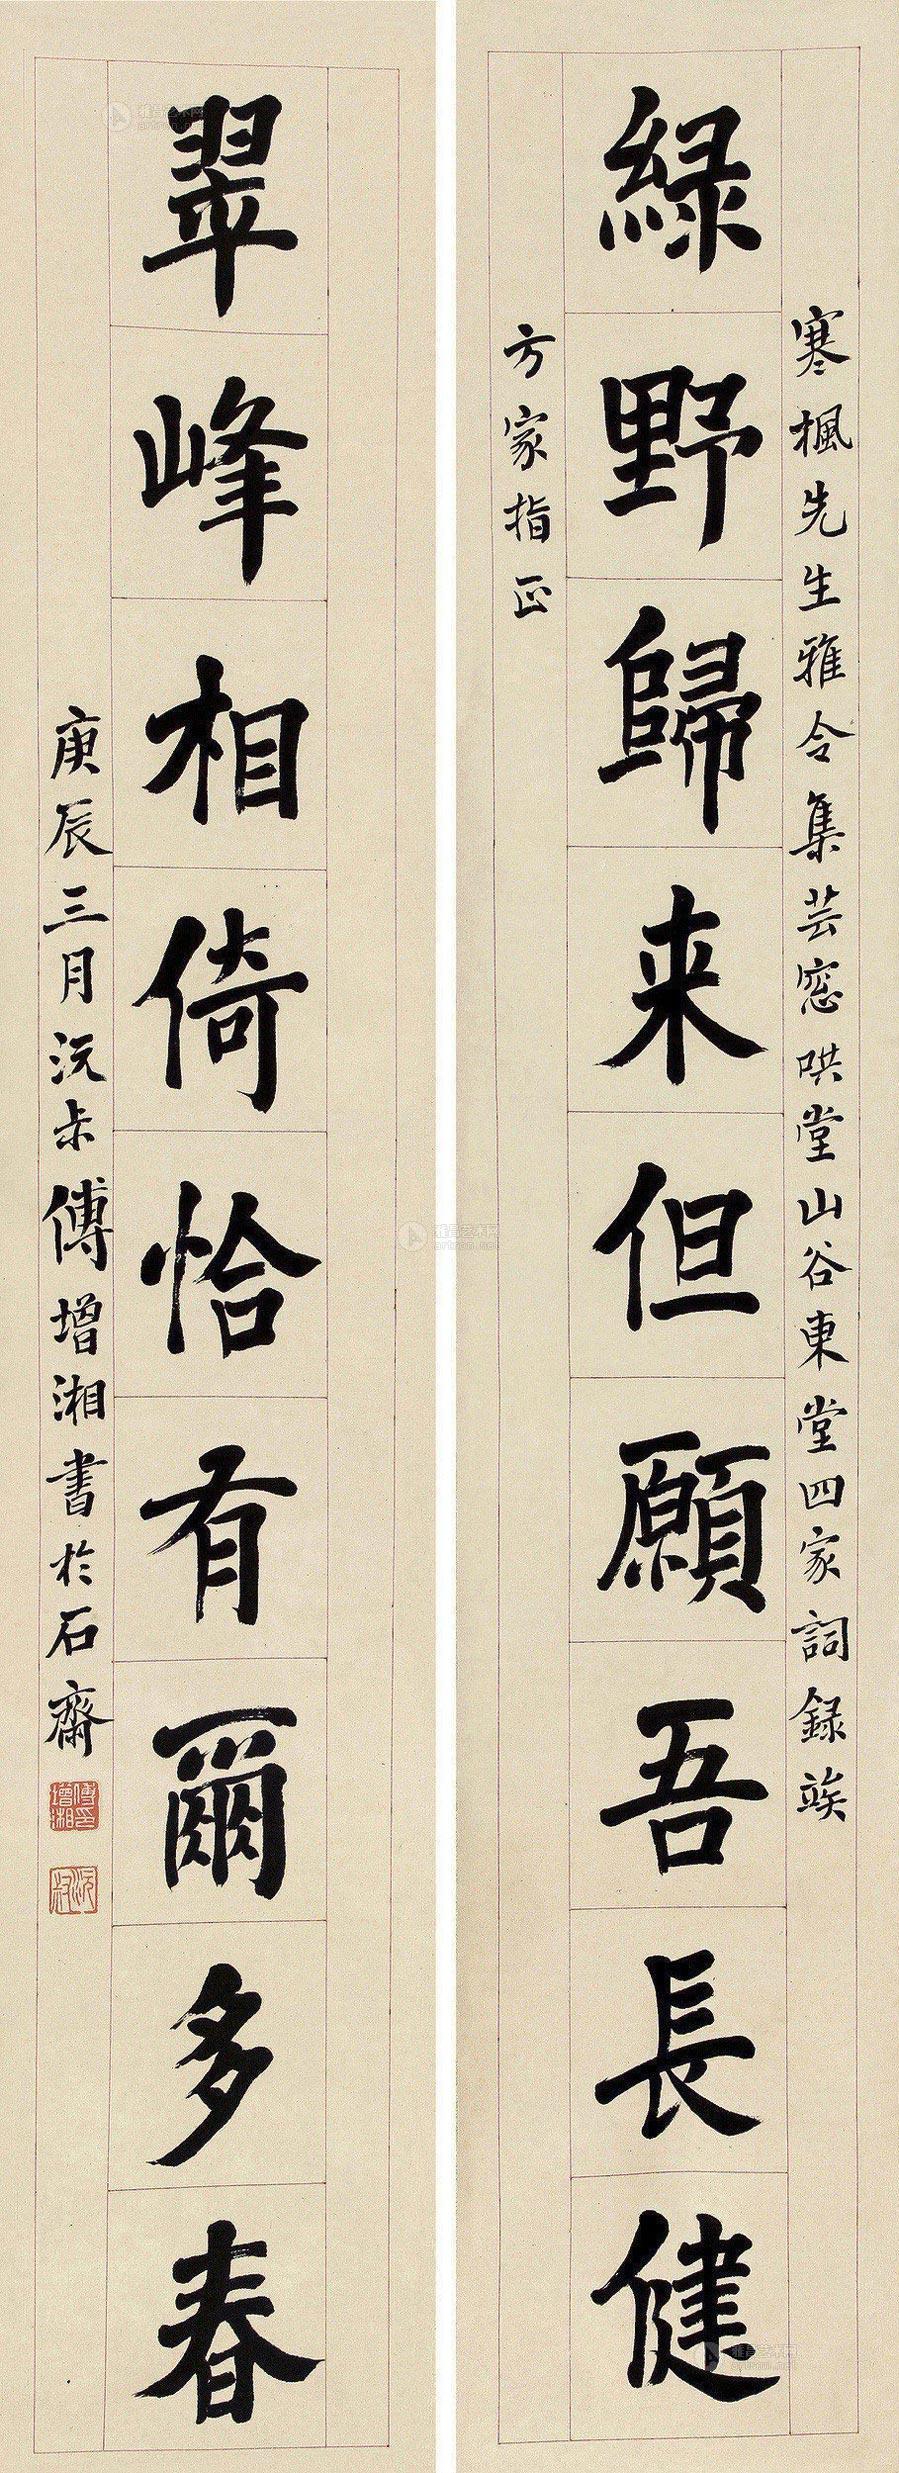 寒楓先生雅令集芸窓哄堂山谷東堂四家詞録竢
綠野歸来但願吾長健
方家指正
翠峰相倚恰有爾多春
庚辰三月沅尗傅增湘書於石齋
傅增湘印
沅叔
雅昌艺术网
artron.net